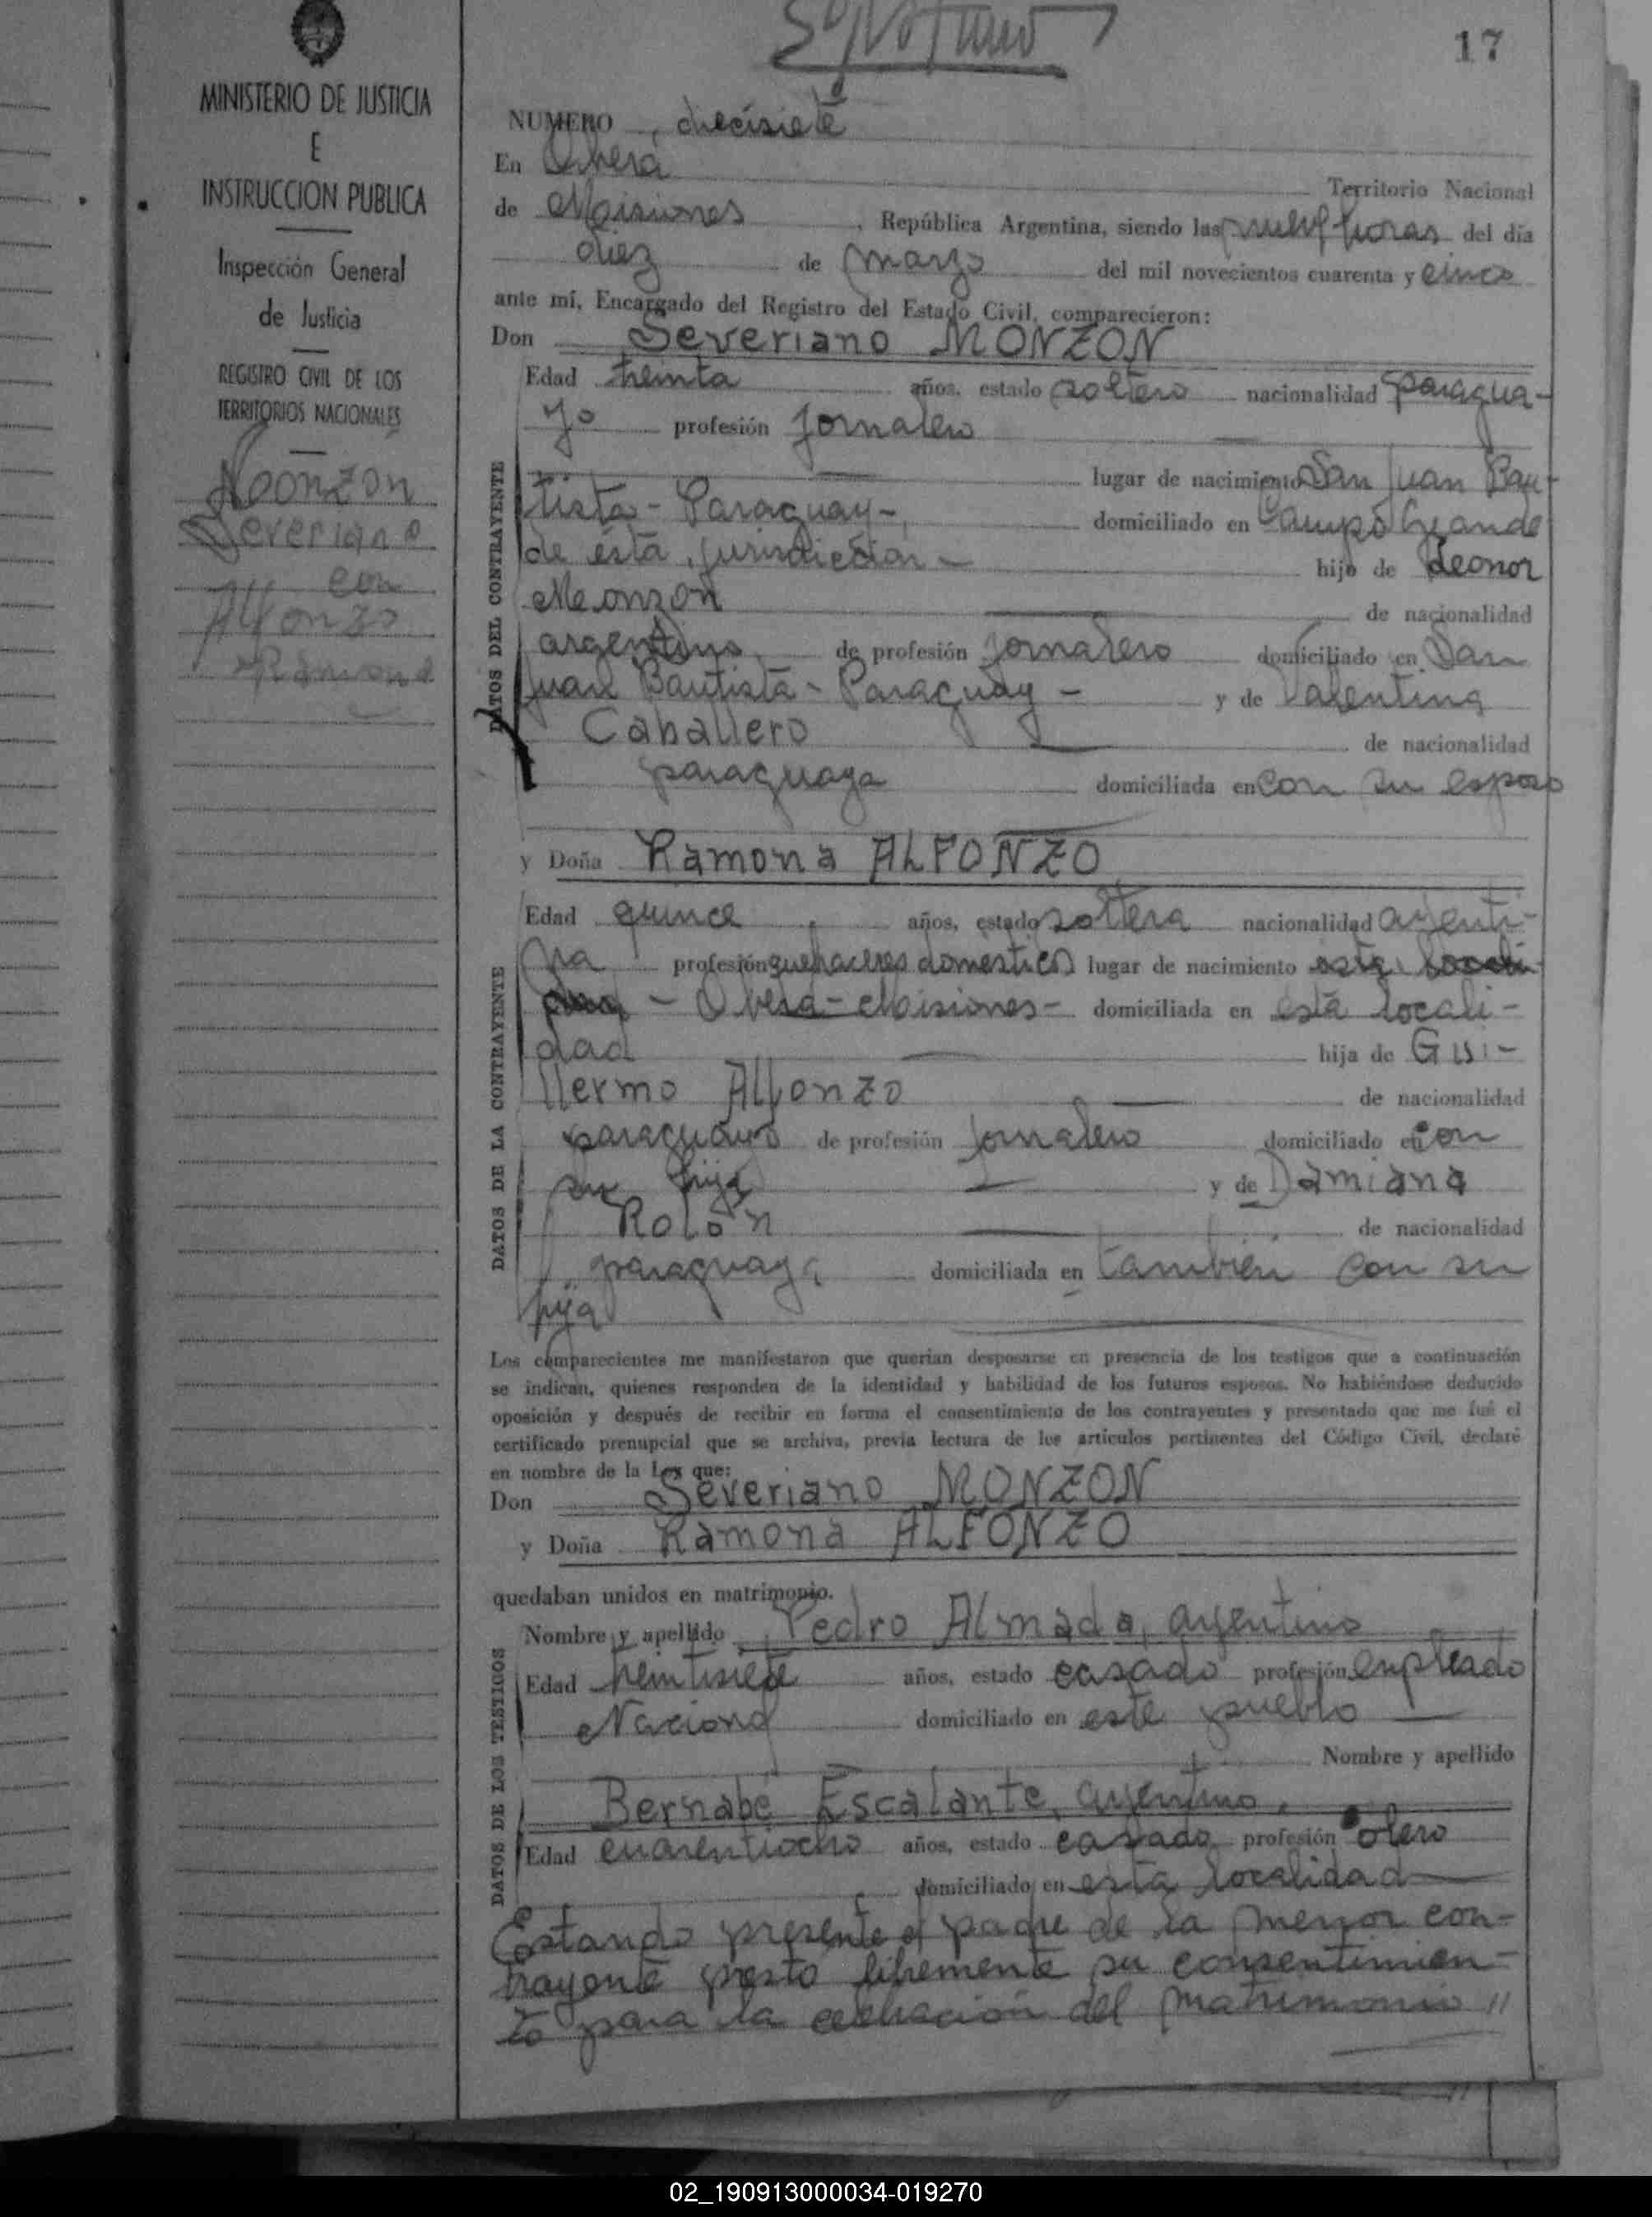 17
MINISTERIO DE JUSTICIA
E
INSTRUCCION PUBLICA
Inspección General
de Justicia
REGISTRO CIVIL DE LOS
TERRITORIOS NACIONALES
Monzon
Severiano
con
Alfonzo
Ramona
NUMERO diecisiete
En Oberá Territorio Nacional
de Misiones, República Argentina, siendo las nueve horas del día
diez de marzo del mil novecientos cuarenta y cinco
ante mí, Encargado del Registro del Estado Civil, comparecieron:
Don Severiano MONZON
DATOS DEL CONTRAYENTE
Edad treinta años, estado soltero nacionalidad paragua-
yo profesión jornalero
lugar de nacimiento San Juan Bau-
tista - Paraguay -, domiciliado en Campo Grande
de ésta jurisdicción - hijo de Leonor
Monzón de nacionalidad
argentino de profesión jornalero domiciliado en San
Juan Bautista - Paraguay - y de Valentina
Caballero de nacionalidad
paraguaya domiciliada en con su esposo
y Doña Ramona ALFONZO
DATOS DE LA CONTRAYENTE
Edad quince años, estado soltera nacionalidad argenti-
na profesión quehaceres domésticos lugar de nacimiento esta locali-
dad - Oberá - Misiones - domiciliada en ésta locali-
dad hija de Gui-
llermo Alfonzo de nacionalidad
paraguayo de profesión jornalero domiciliado en con
su hija y de Damiana
Rolón de nacionalidad
paraguaya domiciliada en también con su
hija
Los comparecientes me manifestaron que querían desposarse en presencia de los testigos que a continuación
se indican, quienes responden de la identidad y habilidad de los futuros esposos. No habiéndose deducido
oposición y después de recibir en forma el consentimiento de los contrayentes y presentado que me fué el
certificado prenupcial que se archiva, previa lectura de los artículos pertinentes del Código Civil, declaré
en nombre de la Ley que:
Don Severiano MONZON
y Doña Ramona ALFONZO
quedaban unidos en matrimonio.
DATOS DE LOS TESTIGOS
Nombre y apellido Pedro Almada, argentino
Edad treintisiete años, estado casado profesión empleado
Nacional domiciliado en este pueblo
Nombre y apellido
Bernabé Escalante, argentino,
Edad cuarentiocho años, estado casado profesión olero
domiciliado en esta localidad
Estando presente el padre de la menor con-
trayente presto libremente su consentimien-
to para la celebración del matrimonio //
02_190913000034-019270